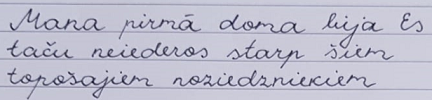 Mana pirmā doma bija Es
taču neiederos starp šiem
topošajiem noziedzniekiem